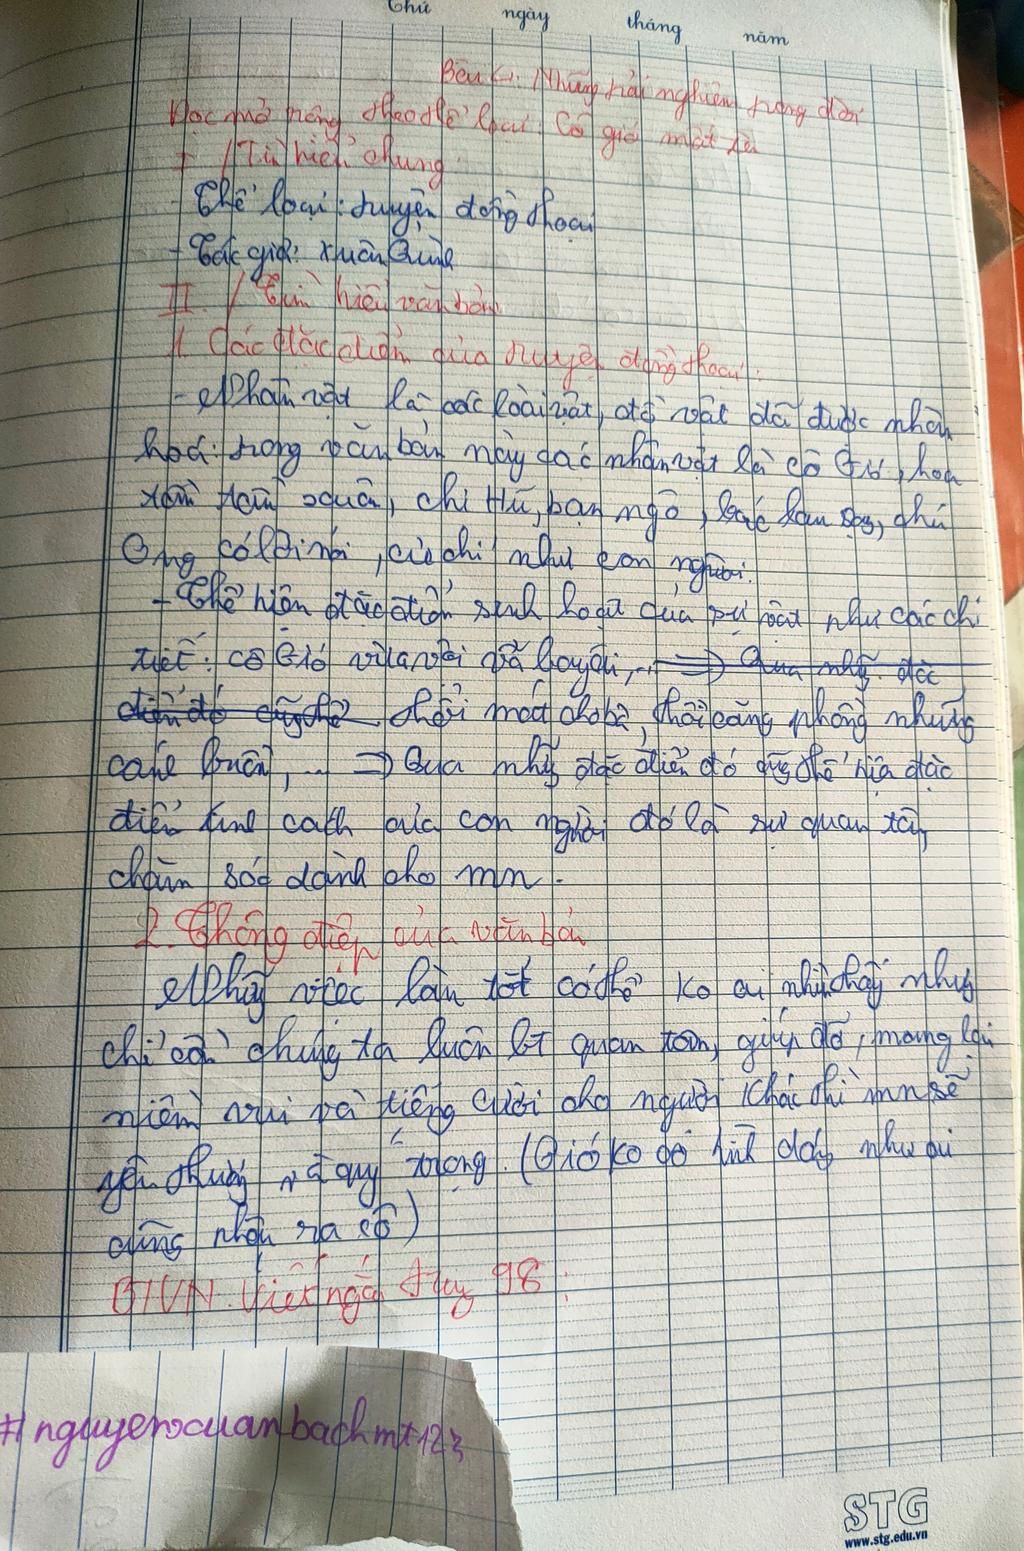 Thứ ngày tháng năm
Bài 4. Những trải nghiệm trong đời
Đọc mở rộng theo thể loại: Cô gió mất tên
I / Tìm hiểu chung
- Thể loại: truyện đồng thoại
- Tác giả: Xuân Quỳnh
II. / Tìm hiểu văn bản
1. Các đặc điểm của truyện đồng thoại:
- Nhân vật là các loài vật, đồ vật đã được nhân
hoá: trong văn bản này các nhân vật là cô Gió, hoa
chị Hũ, bạn ngô, chú
Ong có lời nói, cử chỉ như con người.
- Thể hiện đặc điểm sinh hoạt của sự vật như các chi
tiết: cô Gió vừa nói vả bay đi, ... => Qua nhg đặc
điểm đó cũg thể thổi mát cho bà, thổi căng phồng những
cánh buồm, ... => Qua nhg đặc điểm đó cũg thể hiện đặc
điểm tính cách của con người đó là sự quan tâm,
chăm sóc dành cho mn.
2. Thông điệp của văn bản
Nhữg việc làm tốt có thể ko ai nhìn thấy nhưg
chỉ cần chúng ta luôn quan tâm, giúp đỡ, mang lại
niềm vui và tiếng cười cho người khác thì mn sẽ
yêu thươg và quý trọng. (Gió ko có hình dág như ai
cũng nhận ra cô)
BTVN. Viết ngắn trag 98:
#nguyenxuanbachmt123
STG
www.stg.edu.vn